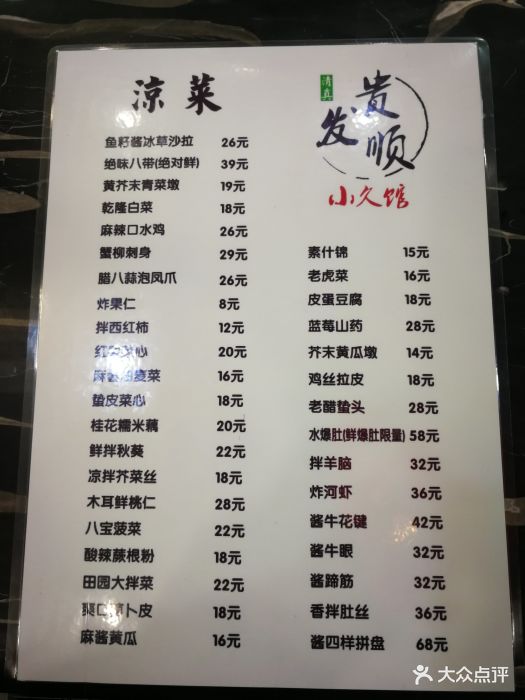 凉菜
鱼籽酱冰草沙拉 26元
绝味八带(绝对鲜) 39元
黄芥末青菜墩 19元
乾隆白菜 18元
麻辣口水鸡 26元
蟹柳刺身 29元
腊八蒜泡凤爪 26元
炸果仁 8元
拌西红柿 12元
红 心 20元
麻 麦菜 16元
蛰皮菜心 18元
桂花糯米藕 20元
鲜拌秋葵 22元
凉拌芥菜丝 18元
木耳鲜桃仁 28元
八宝菠菜 22元
酸辣蕨根粉 18元
田园大拌菜 22元
爽口萝卜皮 18元
麻酱黄瓜 16元
清真
贵发顺
小久馆
素什锦 15元
老虎菜 16元
皮蛋豆腐 18元
蓝莓山药 28元
芥末黄瓜墩 14元
鸡丝拉皮 18元
老醋蛰头 28元
水爆肚(鲜爆肚限量) 58元
拌羊脑 32元
炸河虾 36元
酱牛花键 42元
酱牛眼 32元
酱蹄筋 32元
香拌肚丝 36元
酱四样拼盘 68元
大众点评